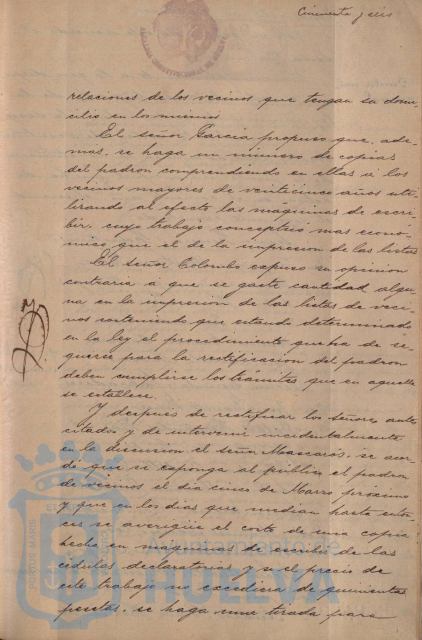 Cincuenta y seis
relaciones de los vecinos que tengan su domi-
cilio en los mismos
El señor García propuso que, ade-
mas, se haga un número de copias
del padron comprendiendo en ellas a los
vecinos mayores de veinticinco años uti-
lizando al efecto las máquinas de escri-
bir, cuyo trabajo conceptuó mas econó-
mico que el de la impresion de las listas
El señor Colombo expuso su opinión
contraria á que se gaste cantidad algu-
na en la impresion de las listas de veci-
nos sosteniendo que estando determinado
en la ley el procedimiento que ha de se-
guirse para la rectificacion del padron
deben cumplirse los trámites que en aquella
se establece.
Y despues de rectificar los señores ante
citados y de intervenir incidentalmente
en la discusion el señor Mascarós, se acor-
dó que se esponga al público el padron
de vecinos el dia cinco de Marzo próximo
y que en los dias que median hasta enton-
ces se averigüe el costo de una copia
hecha en máquinas de escribir de las
cédulas declaratorias y si el precio de
este trabajo no excediera de quinientas
pesetas, se haga una tirada para
PORTUS MARIS
Ayuntamiento de
HUELVA